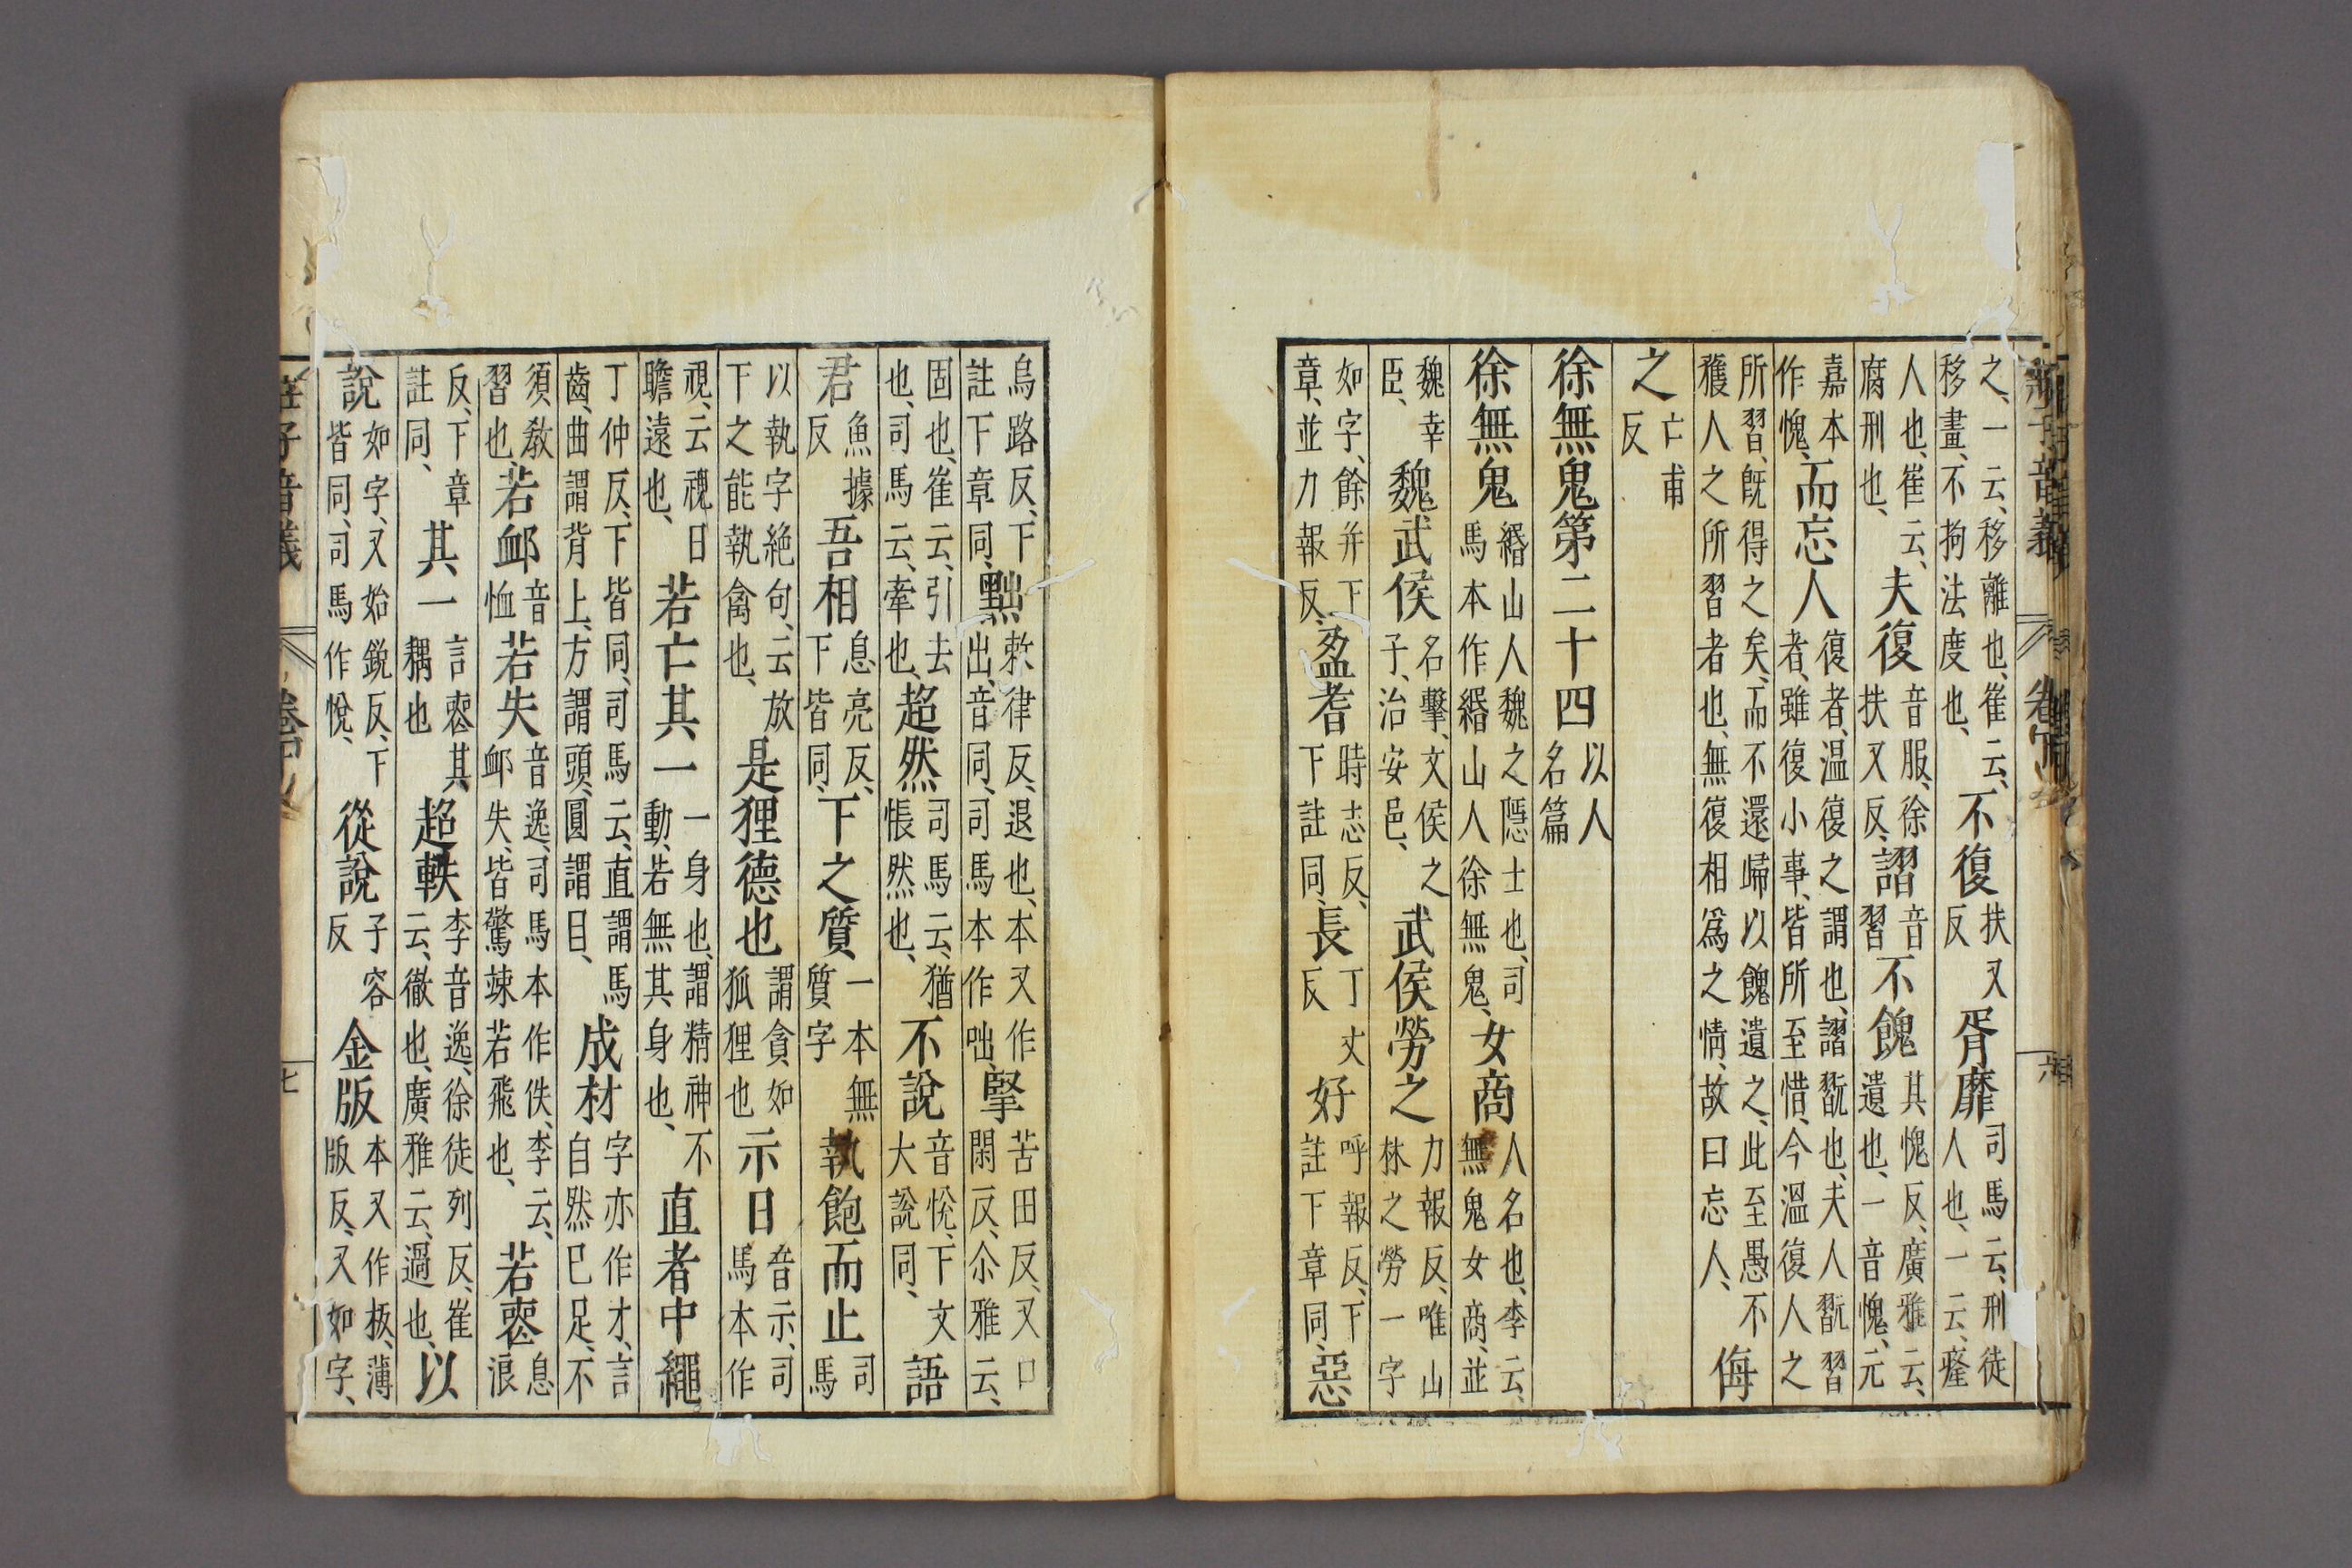 之、一云、移離也、崔云、移畫、不拘法度也、不復扶又反胥靡司馬云、刑徒人也、一云、癃
人也、崔云、腐刑也、夫復音服、徐扶又反、謵音習不餽其愧反、廣雅云、遺也、一音愧、元
嘉本作愧、而忘人復者、温復之謂也、謵翫也、夫人翫習者、雖復小事、皆所至惜、今溫復人之
所習、既得之矣、而不還歸以餽遺之、此至愚不獲人之所習者也、無復相爲之情、故曰忘人、侮
之亡甫反
徐無鬼第二十四以人名篇
徐無鬼緡山人魏之隱士也、司馬本作緡山人徐無鬼、女商人名也、李云、無鬼女商、並
魏幸臣、魏武侯名擊、文侯之子、治安邑、武侯勞之力報反、唯山林之勞一字
如字、餘并下章、並力報反、盈耆時志反、下註同、長丁丈反好呼報反、下註下章同、惡
烏路反、下註下章同、黜敕律反、退也、本又作出、音同、司馬本作咄、掔苦田反、又口閑反、尒雅云、
固也、崔云、引去也、司馬云、牽也、超然司馬云、猶悵然也、不說音悅、下文大說同、語
君魚據反吾相息亮反、下皆同、下之質一本無質字執飽而止司馬
以執字絶句、云放下之能執禽也、是狸德也謂貪如狐狸也示日音示、司馬本作
視、云視日瞻遠也、若亡其一一身也、謂精神不動、若無其身也、直者中繩
丁仲反、下皆同、司馬云、直謂馬齒、曲謂背上、方謂頭、圓謂目、成材字亦作才、言自然巳足、不
須敎習也、若卹音恤若失音逸、司馬本作佚、李云、卹失、皆驚竦若飛也、若喪息浪
反、下章註同、其一言喪其耦也超軼李音逸、徐徒列反、崔云、徹也、廣雅云、過也、以
說如字、又始銳反、下皆同、司馬作悅、從說子容反金版本又作板、薄版反、又如字、
莊子音義 卷下 七